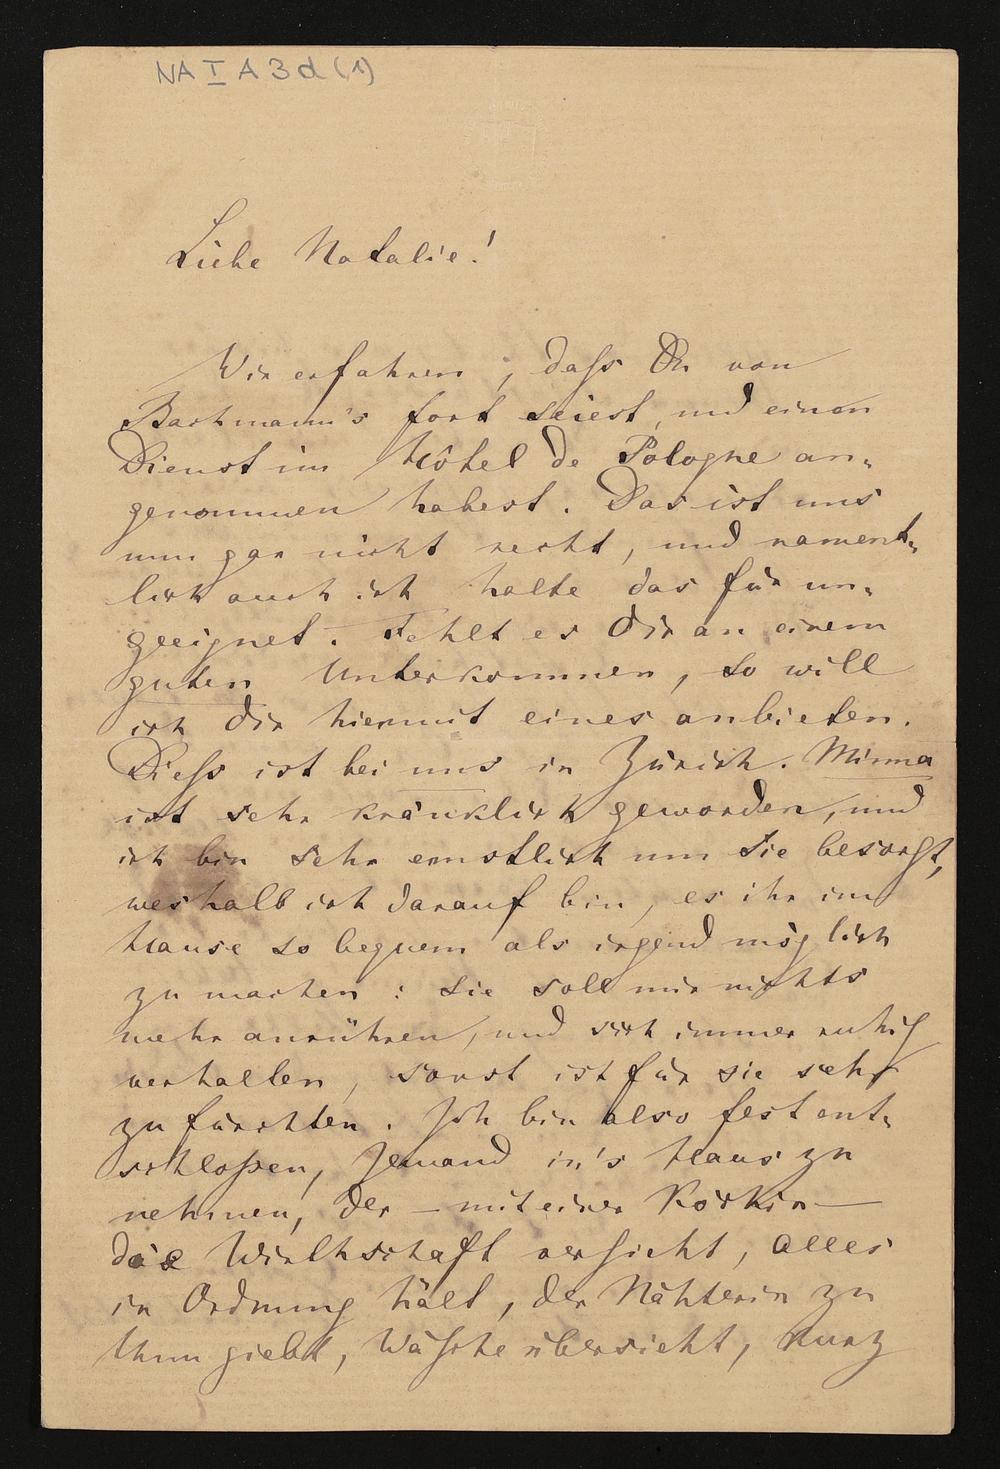 NA I A 3 d (1)
Liebe Natalie!
Wir erfahren, daſs Du von
Bachmann's fort seiest, und einen
Dienst im Hôtel de Pologne an-
genommen habest. Das ist uns
nun gar nicht recht, und nament-
lich auch ich halte das für un-
geeignet. Fehlt es Dir an einem
guten Unterkommen, so will
ich Dir hiermit eines anbieten.
Dieſs ist bei uns in Zürich. Minna
ist sehr kränklich geworden, und
ich bin sehr ernstlich um sie besorgt,
weshalb ich darauf bin, es ihr im
Hause so bequem als irgend möglich
zu machen: sie soll mir nichts
mehr anrühren, und sich immer ruhig
verhalten, sonst ist für sie sehr
zu fürchten. Ich bin also fest ent-
schloßen, Jemand in's Haus zu
nehmen, der – mit einer Köchin –
die Wirthschaft versieht, alles
in Ordnung hält, der Nähterin zu
thun giebt, Wäsche übersieht, kurz